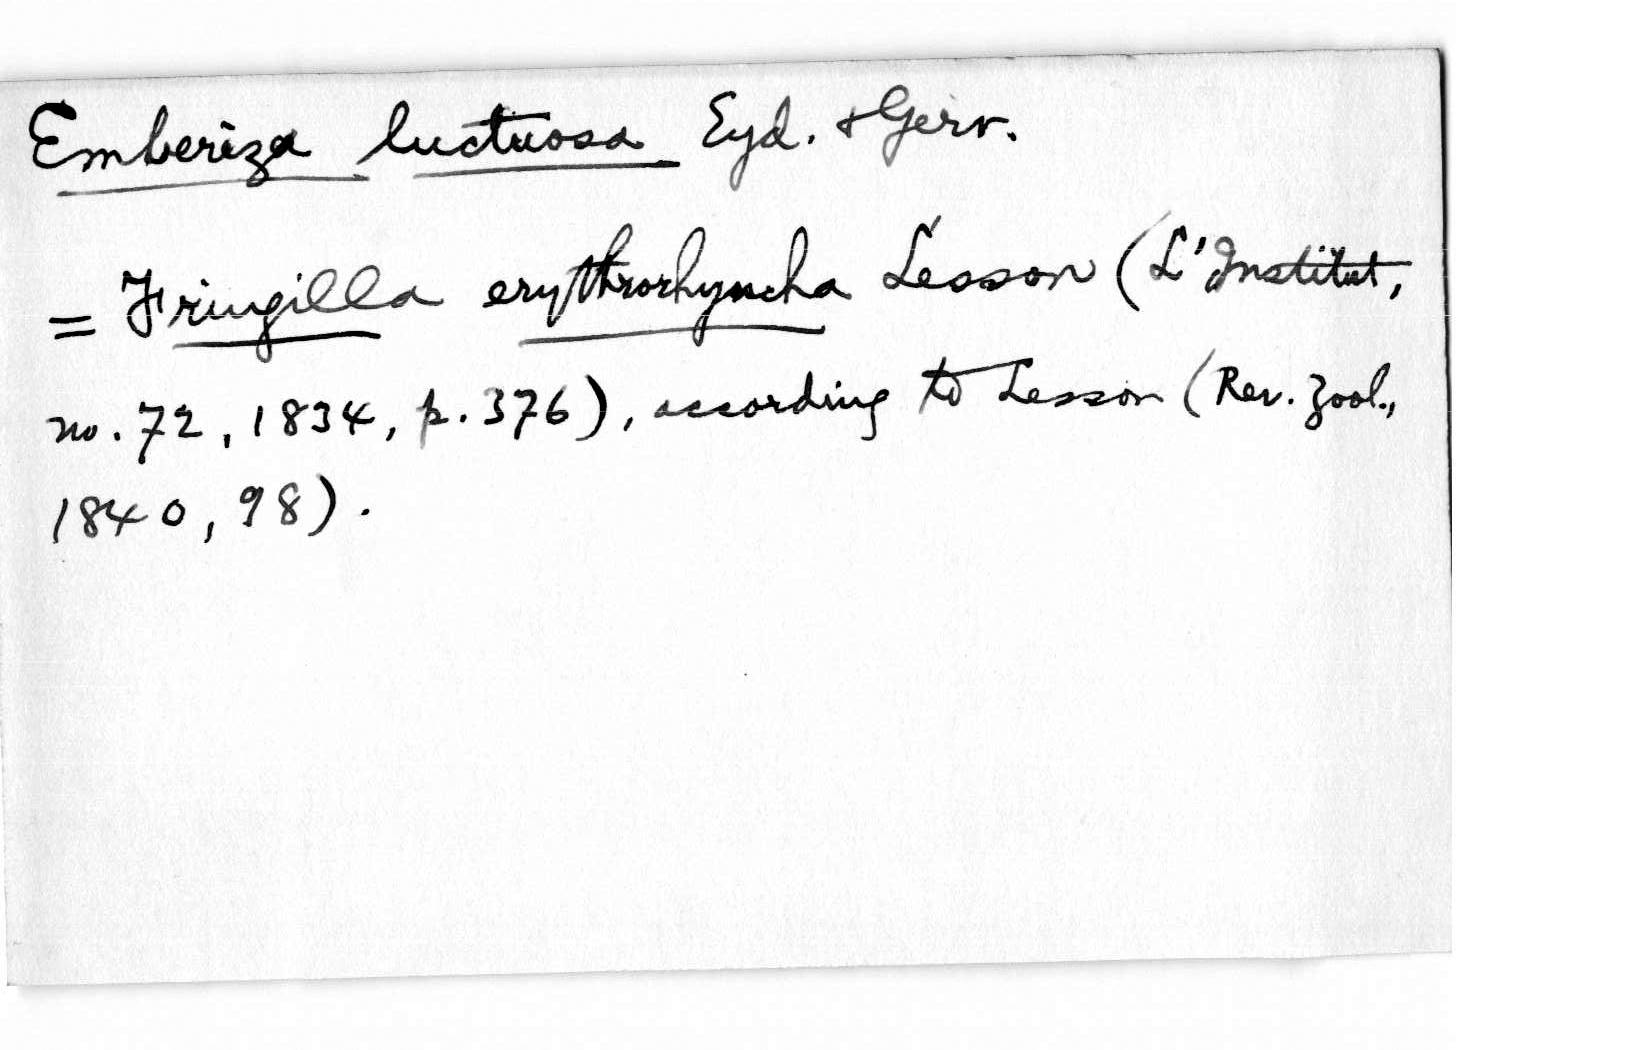 Emberiza luctuosa Eyd. & Gerv.
= Fringilla erythrorhyncha Lesson (L'Institut,
no. 72, 1834, p. 376), according to Lesson (Rev. Zool.,
1840, 98).